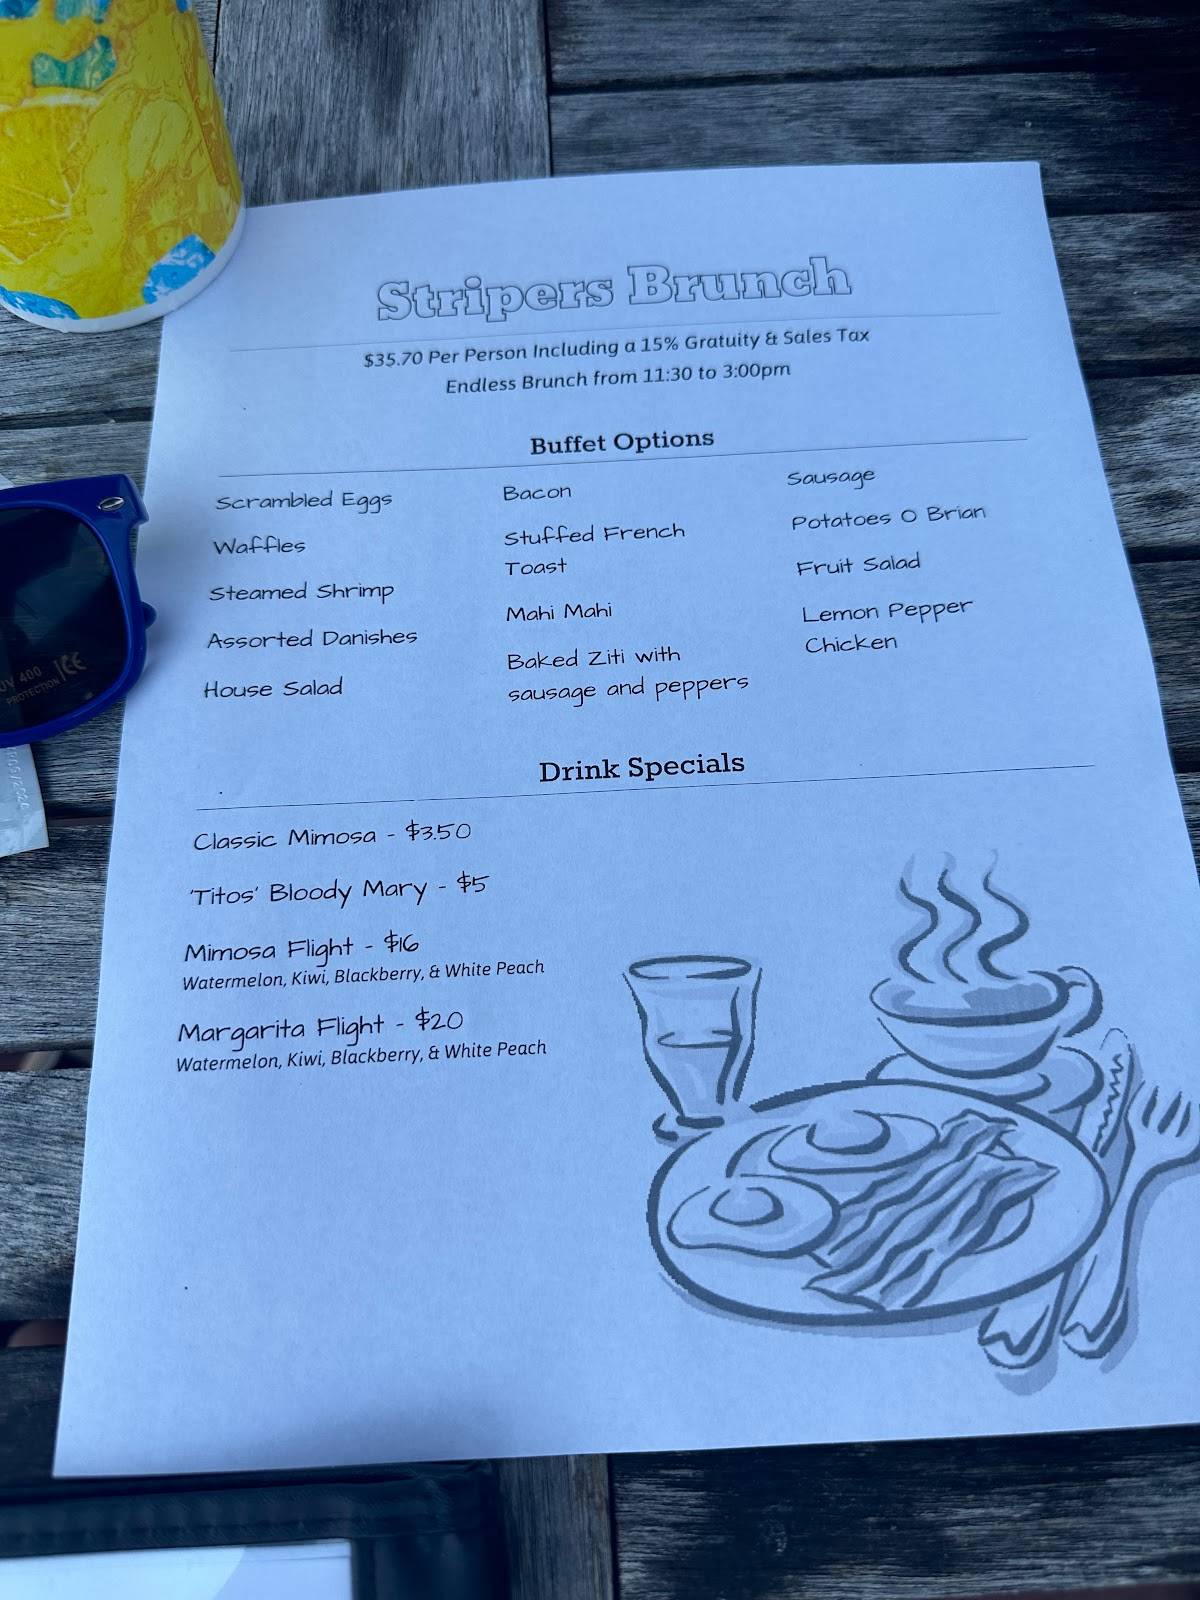 Stripers Brunch
$35.70 Per Person Including a 15% Gratuity & Sales Tax
Endless Brunch from 11:30 to 3:00pm
Buffet Options
Scrambled Eggs
Waffles
Steamed Shrimp
Assorted Danishes
House Salad
Bacon
Stuffed French
Toast
Mahi Mahi
Baked Ziti with
sausage and peppers
Sausage
Potatoes O Brian
Fruit Salad
Lemon Pepper
Chicken
Drink Specials
Classic Mimosa - $3.50
'Titos' Bloody Mary - $5
Mimosa Flight - $16
Watermelon, Kiwi, Blackberry, & White Peach
Margarita Flight - $20
Watermelon, Kiwi, Blackberry, & White Peach
UV 400
PROTECTION
CE